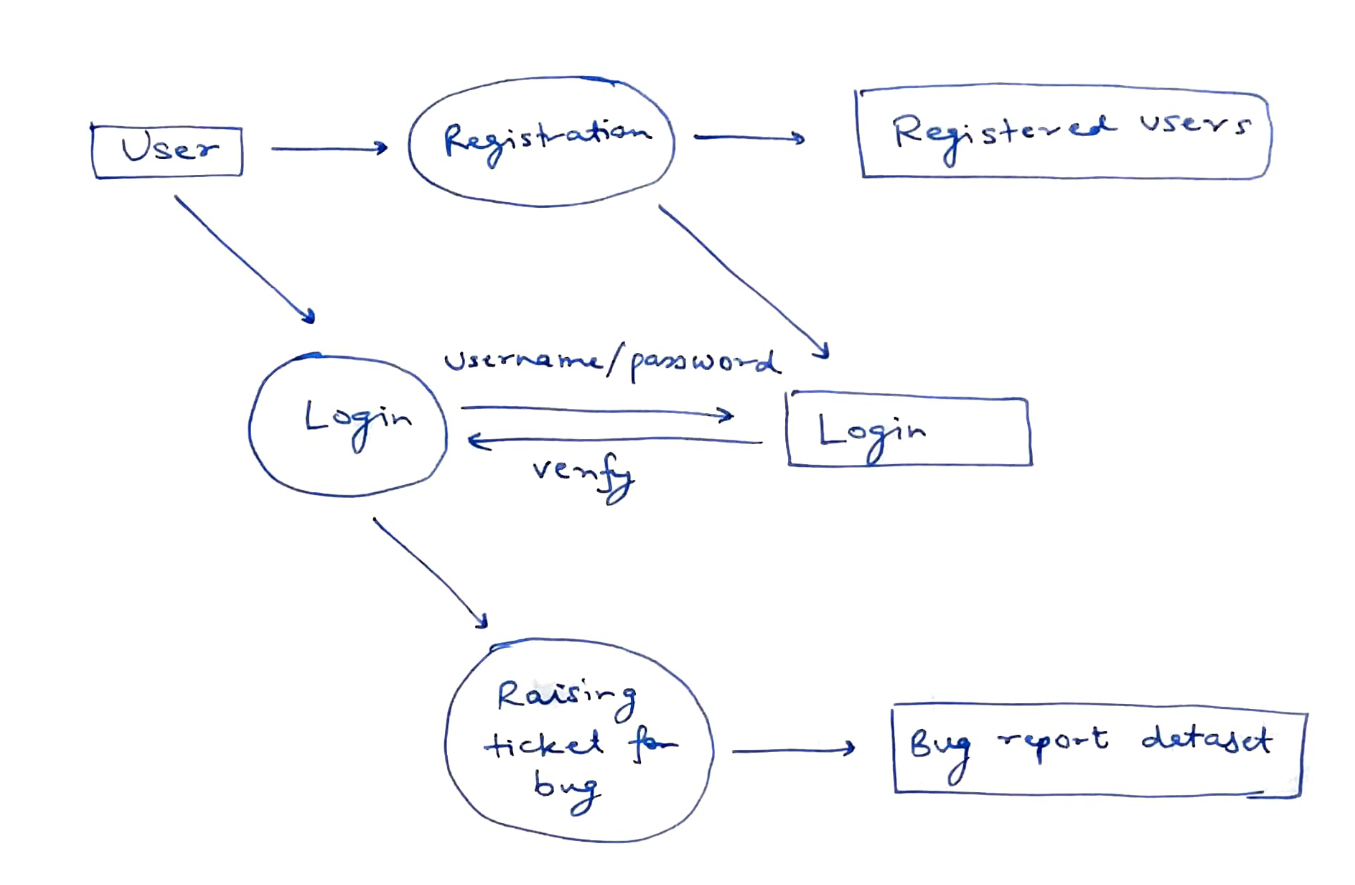 User
Registration
Registered users
username/password
Login
Login
verify
Raising
ticket for
bug
Bug report dataset